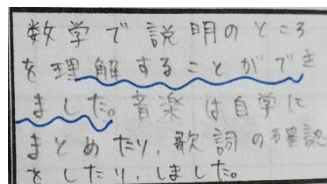 数学で説明のところ
を理解することができ
ました。音楽は自学に
まとめたり、歌詞の確認
をしたり、しました。